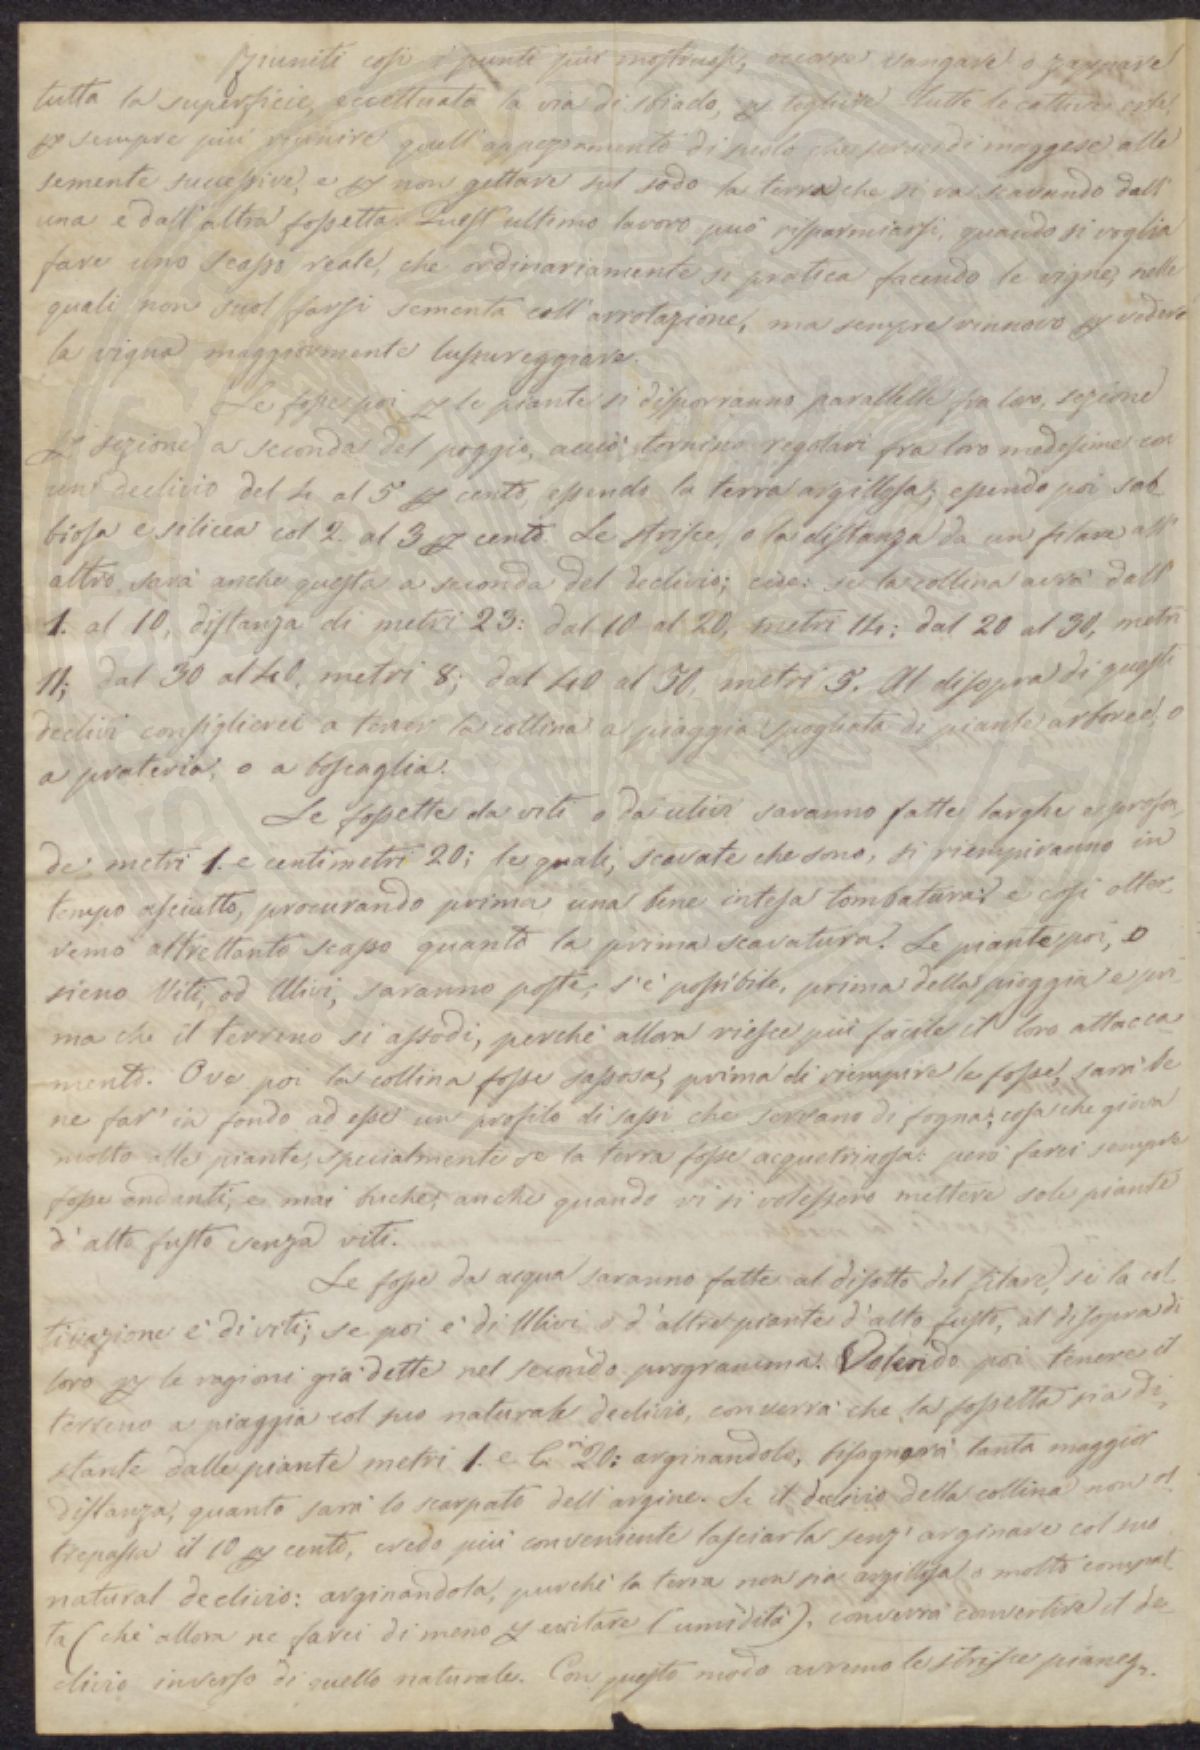 Riuniti così i punti più mostruosi, occorre vangare o zappare
tutta la superficie, eccettuata la via di sbiado, p togliere tutte le cattive erbe,
p sempre più riunire quell'appezzamento di suolo che serva di maggese alle
semente successive, e p non gettare sul sodo la terra che si va scavando dall'
una e dall'altra fossetta. Quest'ultimo lavoro può risparmiarsi, quando si voglia
fare uno scasso reale, che ordinariamente si pratica facendo le vigne, nelle
quali non suol farsi sementa coll'arrotazione, ma sempre rinnovo p vedere
la vigna maggiormente lussureggiare.
Le fosse poi p le piante si disporranno parallelle fra loro, sezione
p sezione a seconda del poggio, acciò tornino regolari fra loro medesime con
un declivio del 4 al 5 p cento, essendo la terra argillosa; essendo poi sab-
biosa e silicea col 2. al 3 p cento. Le strisce, o la distanza da un filare all'
altro, sarà anche questa a seconda del declivio; cioè: se la collina avrà dall'
1. al 10, distanza di metri 23: dal 10 al 20, metri 14; dal 20 al 30, metri
11; dal 30 al 40, metri 8; dal 40 al 50, metri 5. Al disopra di questi
declivi consiglierei a tener la collina a piaggia spogliata di piante arboree, o
a prateria, o a boscaglia.
Le fossette da viti o da ulivi saranno fatte larghe e profon-
de metri 1. e centimetri 20; le quali, scavate che sono, si riempiranno in
tempo asciutto, procurando prima una bene intesa tombatura: e così otter-
remo altrettanto scasso quanto la prima scavatura. Le piante poi, o
sieno Viti, od Ulivi, saranno poste, s'è possibile, prima della pioggia e pri-
ma che il terreno si assodi, perchè allora riesce più facile il loro attacca-
mento. Ove poi la collina fosse sassosa, prima di riempire le fosse, sarà be-
ne far' in fondo ad esse un profilo di sassi che servano di fogna; cosa che giova
molto alle piante, specialmente se la terra fosse acquetrinosa: però farei sempre
fosse andanti, e mai buche; anche quando vi si volessero mettere sole piante
d'alto fusto senza viti.
Le fosse da acqua saranno fatte al disotto del filare, se la col-
tivazione è di viti; se poi è di Ulivi o d'altre piante d'alto fusto, al disopra di
loro p le ragioni già dette nel secondo programma. Volendo poi tenere il
terreno a piaggia col suo naturale declivio, converrà che la fossetta sia di-
stante dalle piante metri 1. e C.ri 20: arginandolo, bisognerà tanta maggior
distanza, quanto sarà lo scarpato dell'argine. Se il declivio della collina non ol-
trepassa il 10 p cento, credo più conveniente lasciarla senz'arginare col suo
natural declivio: arginandola, purchè la terra non sia argillosa o molto compat-
ta (chè allora ne farei di meno p evitare l'umidità), converrà convertire il de-
clivio inverso di quello naturale. Con questo modo avremo le strisce pianeg-